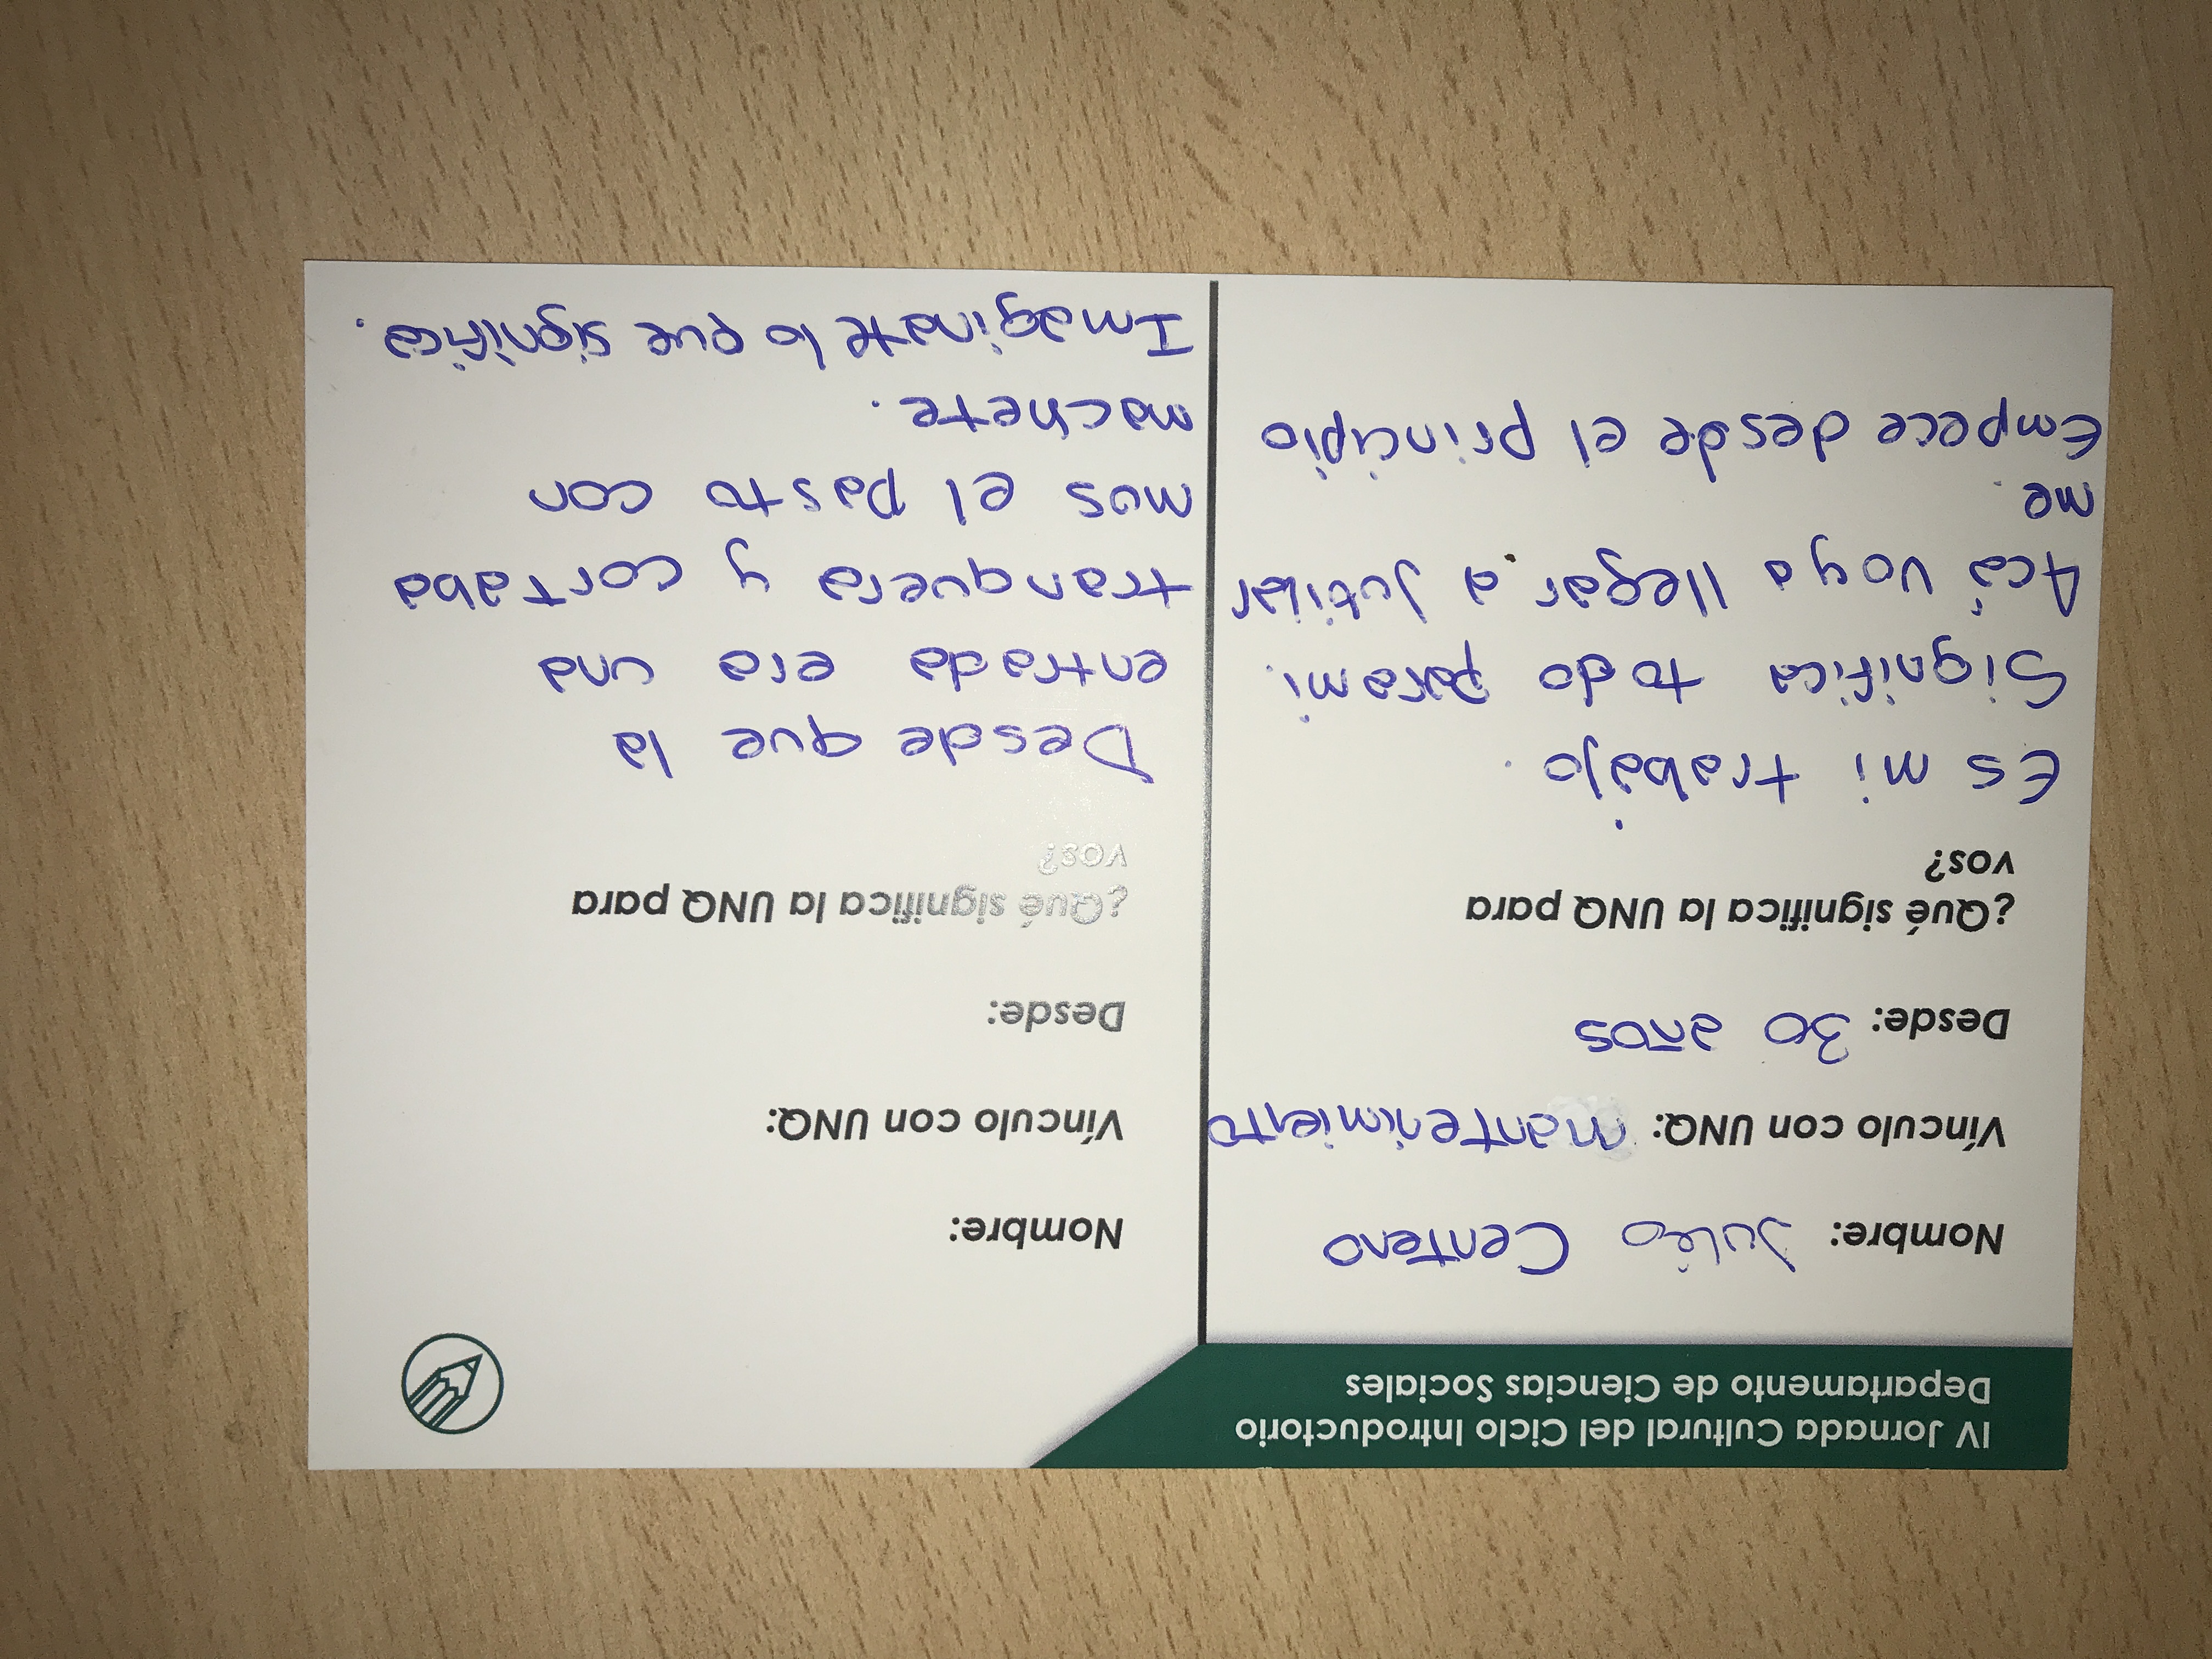 IV Jornada Cultural del Ciclo Introductorio
Departamento de Ciencias Sociales
Nombre: Julio Centeno
Vínculo con UNQ: mantenimiento
Desde: 30 años
¿Qué significa la UNQ para
vos?
Es mi trabajo.
Significa todo para mi.
Acá voy a llegar a Jubilar
me
Empece desde el principio
Nombre:
Vínculo con UNQ:
Desde:
¿Qué significa la UNQ para
vos?
Desde que la
entrada era una
tranquera y cortaba
mos el pasto con
machete.
Imaginate lo que significa.